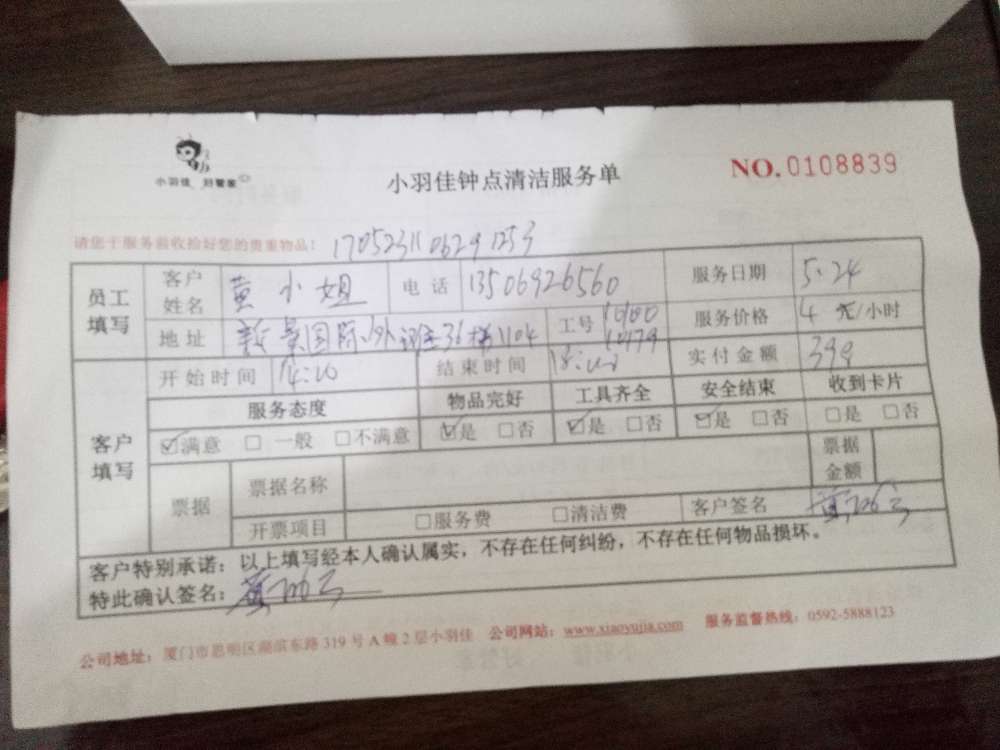 小羽佳 好管家
小羽佳钟点清洁服务单
NO.0108839
请您于服务前收捡好您的贵重物品！
员工填写 客户姓名 黄小姐 电话 13506926560 服务日期 5.24
地址 国际 36梯1104 工号 服务价格 4 元/小时
客户填写 开始时间 14:00 结束时间 18:00 实付金额 399
服务态度 物品完好 工具齐全 安全结束 收到卡片
☑满意 □一般 □不满意 ☑是 □否 ☑是 □否 ☑是 □否 □是 □否
票据 票据名称 票据金额
开票项目 □服务费 □清洁费 客户签名
客户特别承诺：以上填写经本人确认属实，不存在任何纠纷，不存在任何物品损坏。
特此确认签名：
公司地址：厦门市思明区湖滨东路319号A幢2层小羽佳 公司网站：www.xiaoyujia.com 服务监督热线：0592-5888123